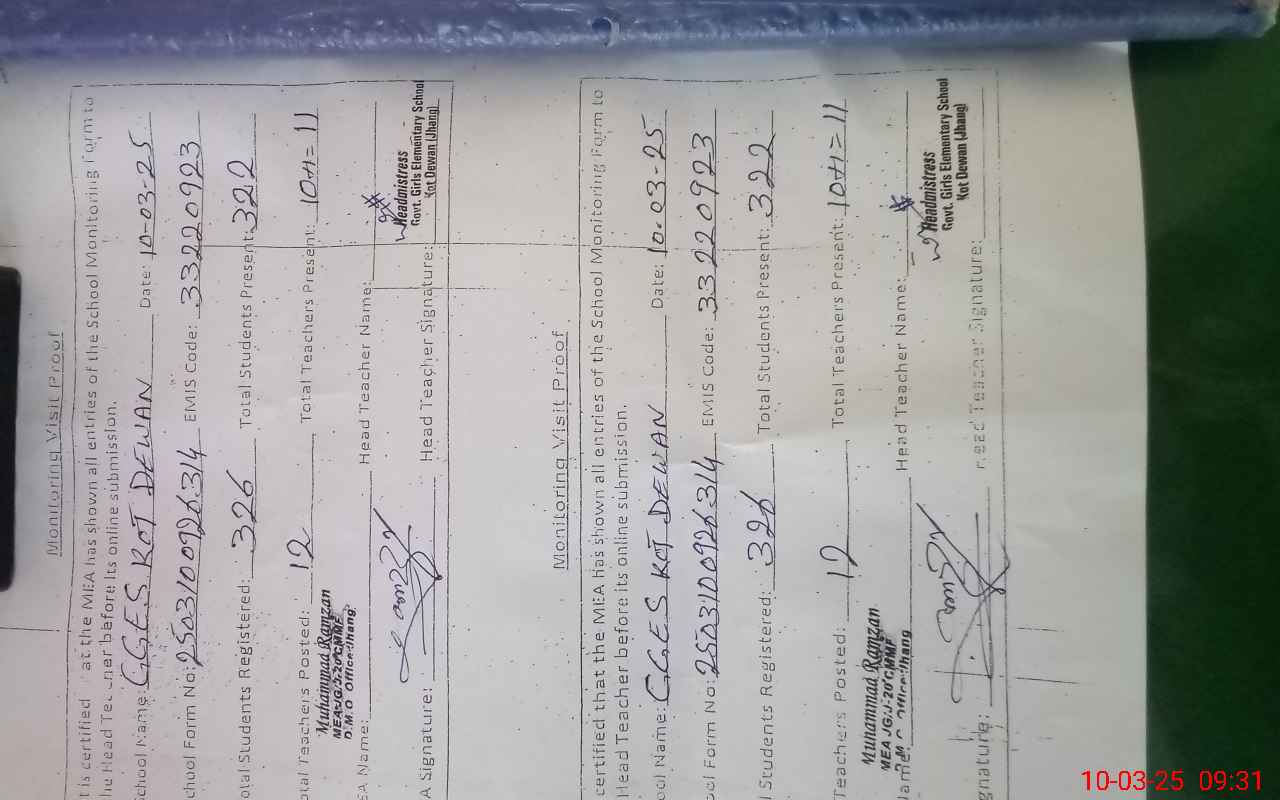 Monitoring Visit Proof
t is certified at the MEA has shown all entries of the School Monitoring Form to
he Head Teacher before its online submission.
School Name: G.G.E.S KOT DEWAN Date: 10-03-25
chool Form No: 2503100926314 EMIS Code: 33220923
otal Students Registered: 326 Total Students Present: 322
otal Teachers Posted: 12 Total Teachers Present: 10+1=11
Muhammad Ramzan
MEA JG.J-20 CMMF
D.M.O Office Jhang
EA Name: Head Teacher Name:
Headmistress
Govt. Girls Elementary School
Kot Dewan (Jhang)
A Signature: Head Teacher Signature:
Monitoring Visit Proof
certified that the MEA has shown all entries of the School Monitoring Form to
Head Teacher before its online submission.
ool Name: G.G.E.S KOT DEWAN Date: 10-03-25
ool Form No: 2503100926314 EMIS Code: 33220923
l Students Registered: 326 Total Students Present: 322
Teachers Posted: 12 Total Teachers Present: 10+1=11
Muhammad Ramzan
MEA JG.J-20 CMMF
Office Jhang
Name: Head Teacher Name:
Headmistress
Govt. Girls Elementary School
Kot Dewan (Jhang)
gnature: Head Teacher Signature:
10-03-25 09:31